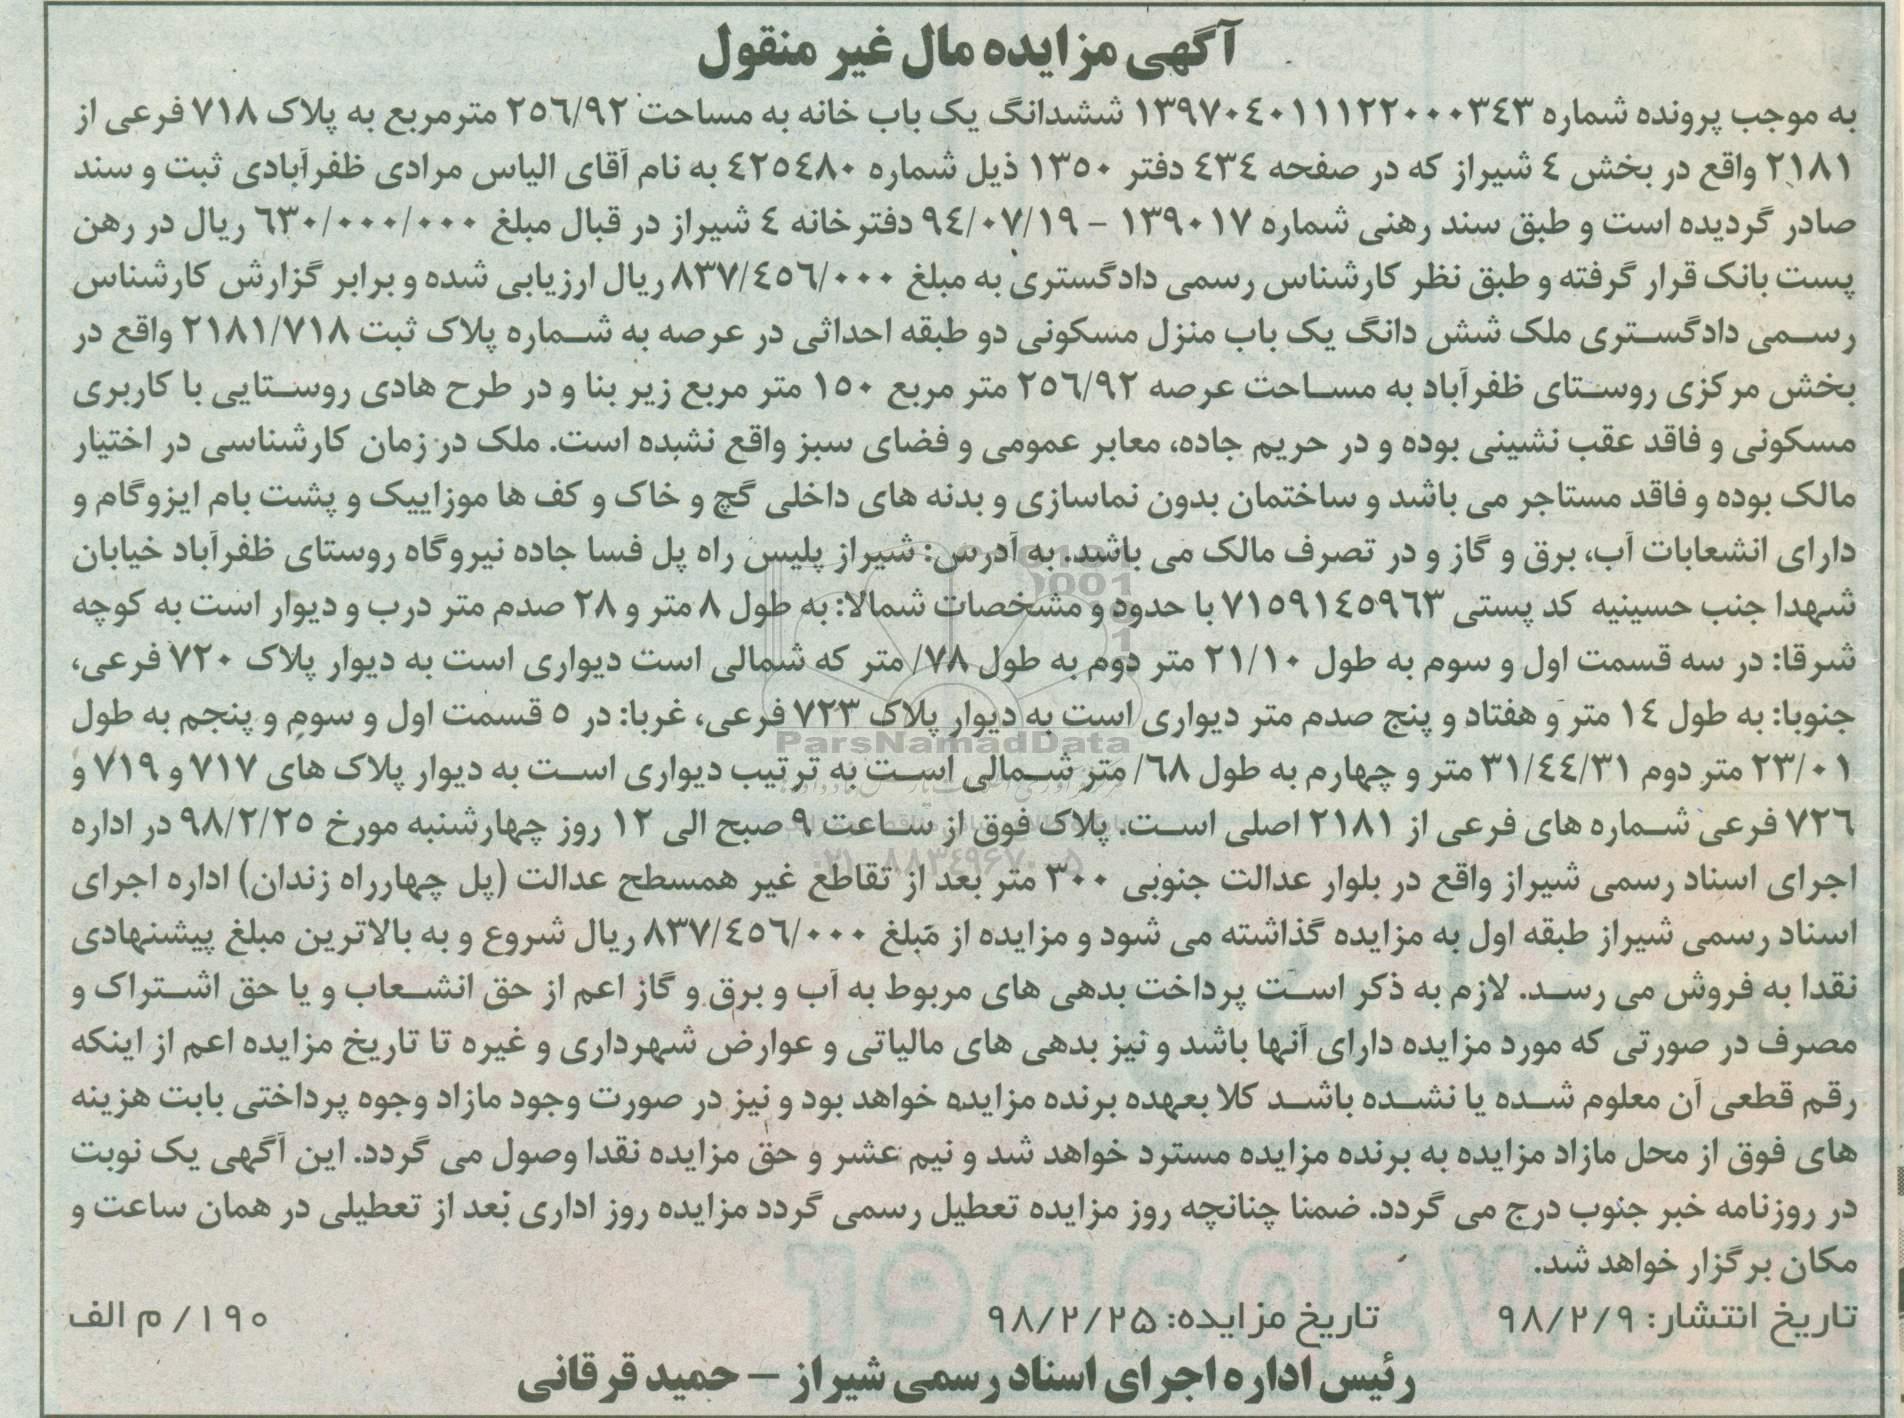 آگهی مزایده مال غیر منقول
به موجب پرونده شماره ۱۳۹۷۰۴۰۱۱۱۲۲۰۰۰۳۴۳ ششدانگ یک باب خانه به مساحت ۲۵٦/۹۲ مترمربع به پلاک ۷۱۸ فرعی از
۲۱۸۱ واقع در بخش ٤ شیراز که در صفحه ٤۳٤ دفتر ۱۳۵۰ ذیل شماره ٤۲۵٤۸۰ به نام آقای الیاس مرادی ظفرآبادی ثبت و سند
صادر گردیده است و طبق سند رهنی شماره ۱۳۹۰۱۷ – ۹٤/۰۷/۱۹ دفترخانه ٤ شیراز در قبال مبلغ ٦۳۰/۰۰۰/۰۰۰ ریال در رهن
پست بانک قرار گرفته و طبق نظر کارشناس رسمی دادگستری به مبلغ ۸۳۷/٤۵٦/۰۰۰ ریال ارزیابی شده و برابر گزارش کارشناس
رسمی دادگستری ملک شش دانگ یک باب منزل مسکونی دو طبقه احداثی در عرصه به شماره پلاک ثبت ۲۱۸۱/۷۱۸ واقع در
بخش مرکزی روستای ظفرآباد به مساحت عرصه ۲۵٦/۹۲ متر مربع ۱۵۰ متر مربع زیر بنا و در طرح هادی روستایی با کاربری
مسکونی و فاقد عقب نشینی بوده و در حریم جاده، معابر عمومی و فضای سبز واقع نشده است. ملک در زمان کارشناسی در اختیار
مالک بوده و فاقد مستاجر می باشد و ساختمان بدون نماسازی و بدنه های داخلی گچ و خاک و کف ها موزاییک و پشت بام ایزوگام و
دارای انشعابات آب، برق و گاز و در تصرف مالک می باشد. به آدرس: شیراز پلیس راه پل فسا جاده نیروگاه روستای ظفرآباد خیابان
شهدا جنب حسینیه کد پستی ۷۱۵۹۱٤۵۹٦۳ با حدود و مشخصات شمالا: به طول ۸ متر و ۲۸ صدم متر درب و دیوار است به کوچه
شرقا: در سه قسمت اول و سوم به طول ۲۱/۱۰ متر دوم به طول ۷۸/ متر که شمالی است دیواری است به دیوار پلاک ۷۲۰ فرعی،
جنوبا: به طول ۱٤ متر و هفتاد و پنج صدم متر دیواری است به دیوار پلاک ۷۲۳ فرعی، غربا: در ۵ قسمت اول و سوم و پنجم به طول
۲۳/۰۱ متر دوم ۳۱/٤٤/۳۱ متر و چهارم به طول ٦۸/ متر شمالی است به ترتیب دیواری است به دیوار پلاک های ۷۱۷ و ۷۱۹ و
۷۲٦ فرعی شماره های فرعی از ۲۱۸۱ اصلی است. پلاک فوق از ساعت ۹ صبح الی ۱۲ روز چهارشنبه مورخ ۹۸/۲/۲۵ در اداره
اجرای اسناد رسمی شیراز واقع در بلوار عدالت جنوبی ۳۰۰ متر بعد از تقاطع غیر همسطح عدالت (پل چهارراه زندان) اداره اجرای
اسناد رسمی شیراز طبقه اول به مزایده گذاشته می شود و مزایده از مبلغ ۸۳۷/٤۵٦/۰۰۰ ریال شروع و به بالاترین مبلغ پیشنهادی
نقدا به فروش می رسد. لازم به ذکر است پرداخت بدهی های مربوط به آب و برق و گاز اعم از حق انشعاب و یا حق اشتراک و
مصرف در صورتی که مورد مزایده دارای آنها باشد و نیز بدهی های مالیاتی و عوارض شهرداری و غیره تا تاریخ مزایده اعم از اینکه
رقم قطعی آن معلوم شده یا نشده باشد کلا بعهده برنده مزایده خواهد بود و نیز در صورت وجود مازاد وجوه پرداختی بابت هزینه
های فوق از محل مازاد مزایده به برنده مزایده مسترد خواهد شد و نیم عشر و حق مزایده نقدا وصول می گردد. این آگهی یک نوبت
در روزنامه خبر جنوب درج می گردد. ضمنا چنانچه روز مزایده تعطیل رسمی گردد مزایده روز اداری بعد از تعطیلی در همان ساعت و
مکان برگزار خواهد شد.
تاریخ انتشار: ۹۸/۲/۹ تاریخ مزایده: ۹۸/۲/۲۵ ۱۹۰/ م الف
رئیس اداره اجرای اسناد رسمی شیراز – حمید قرقانی
ParsNamadData